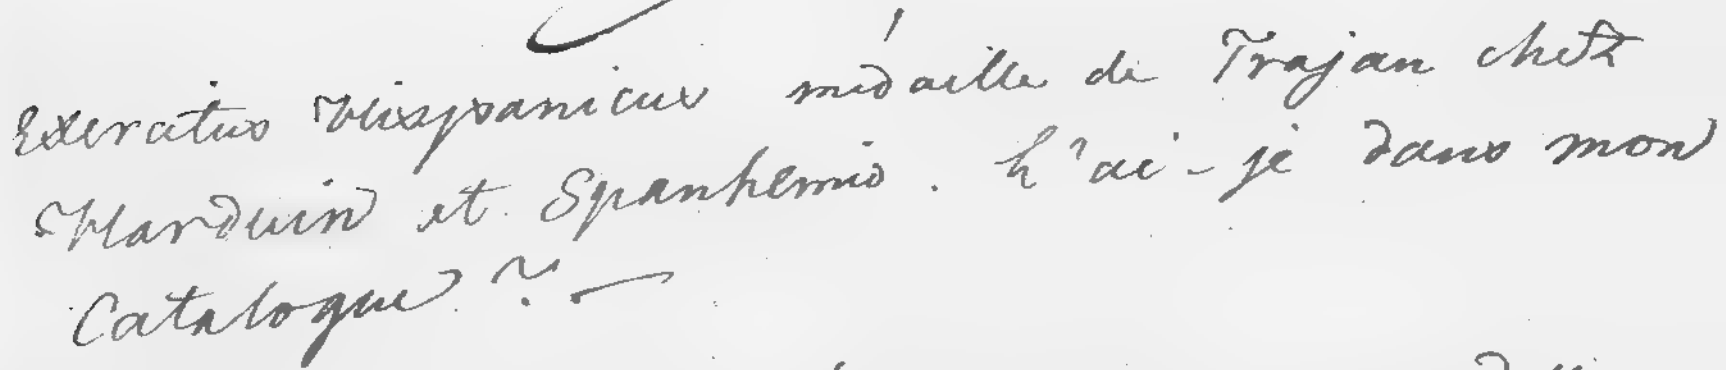 Exercitus Hispanicus médaille de Trajan chez
Harduin et Spanhemio. L'ai-je dans mon
Catalogue? —